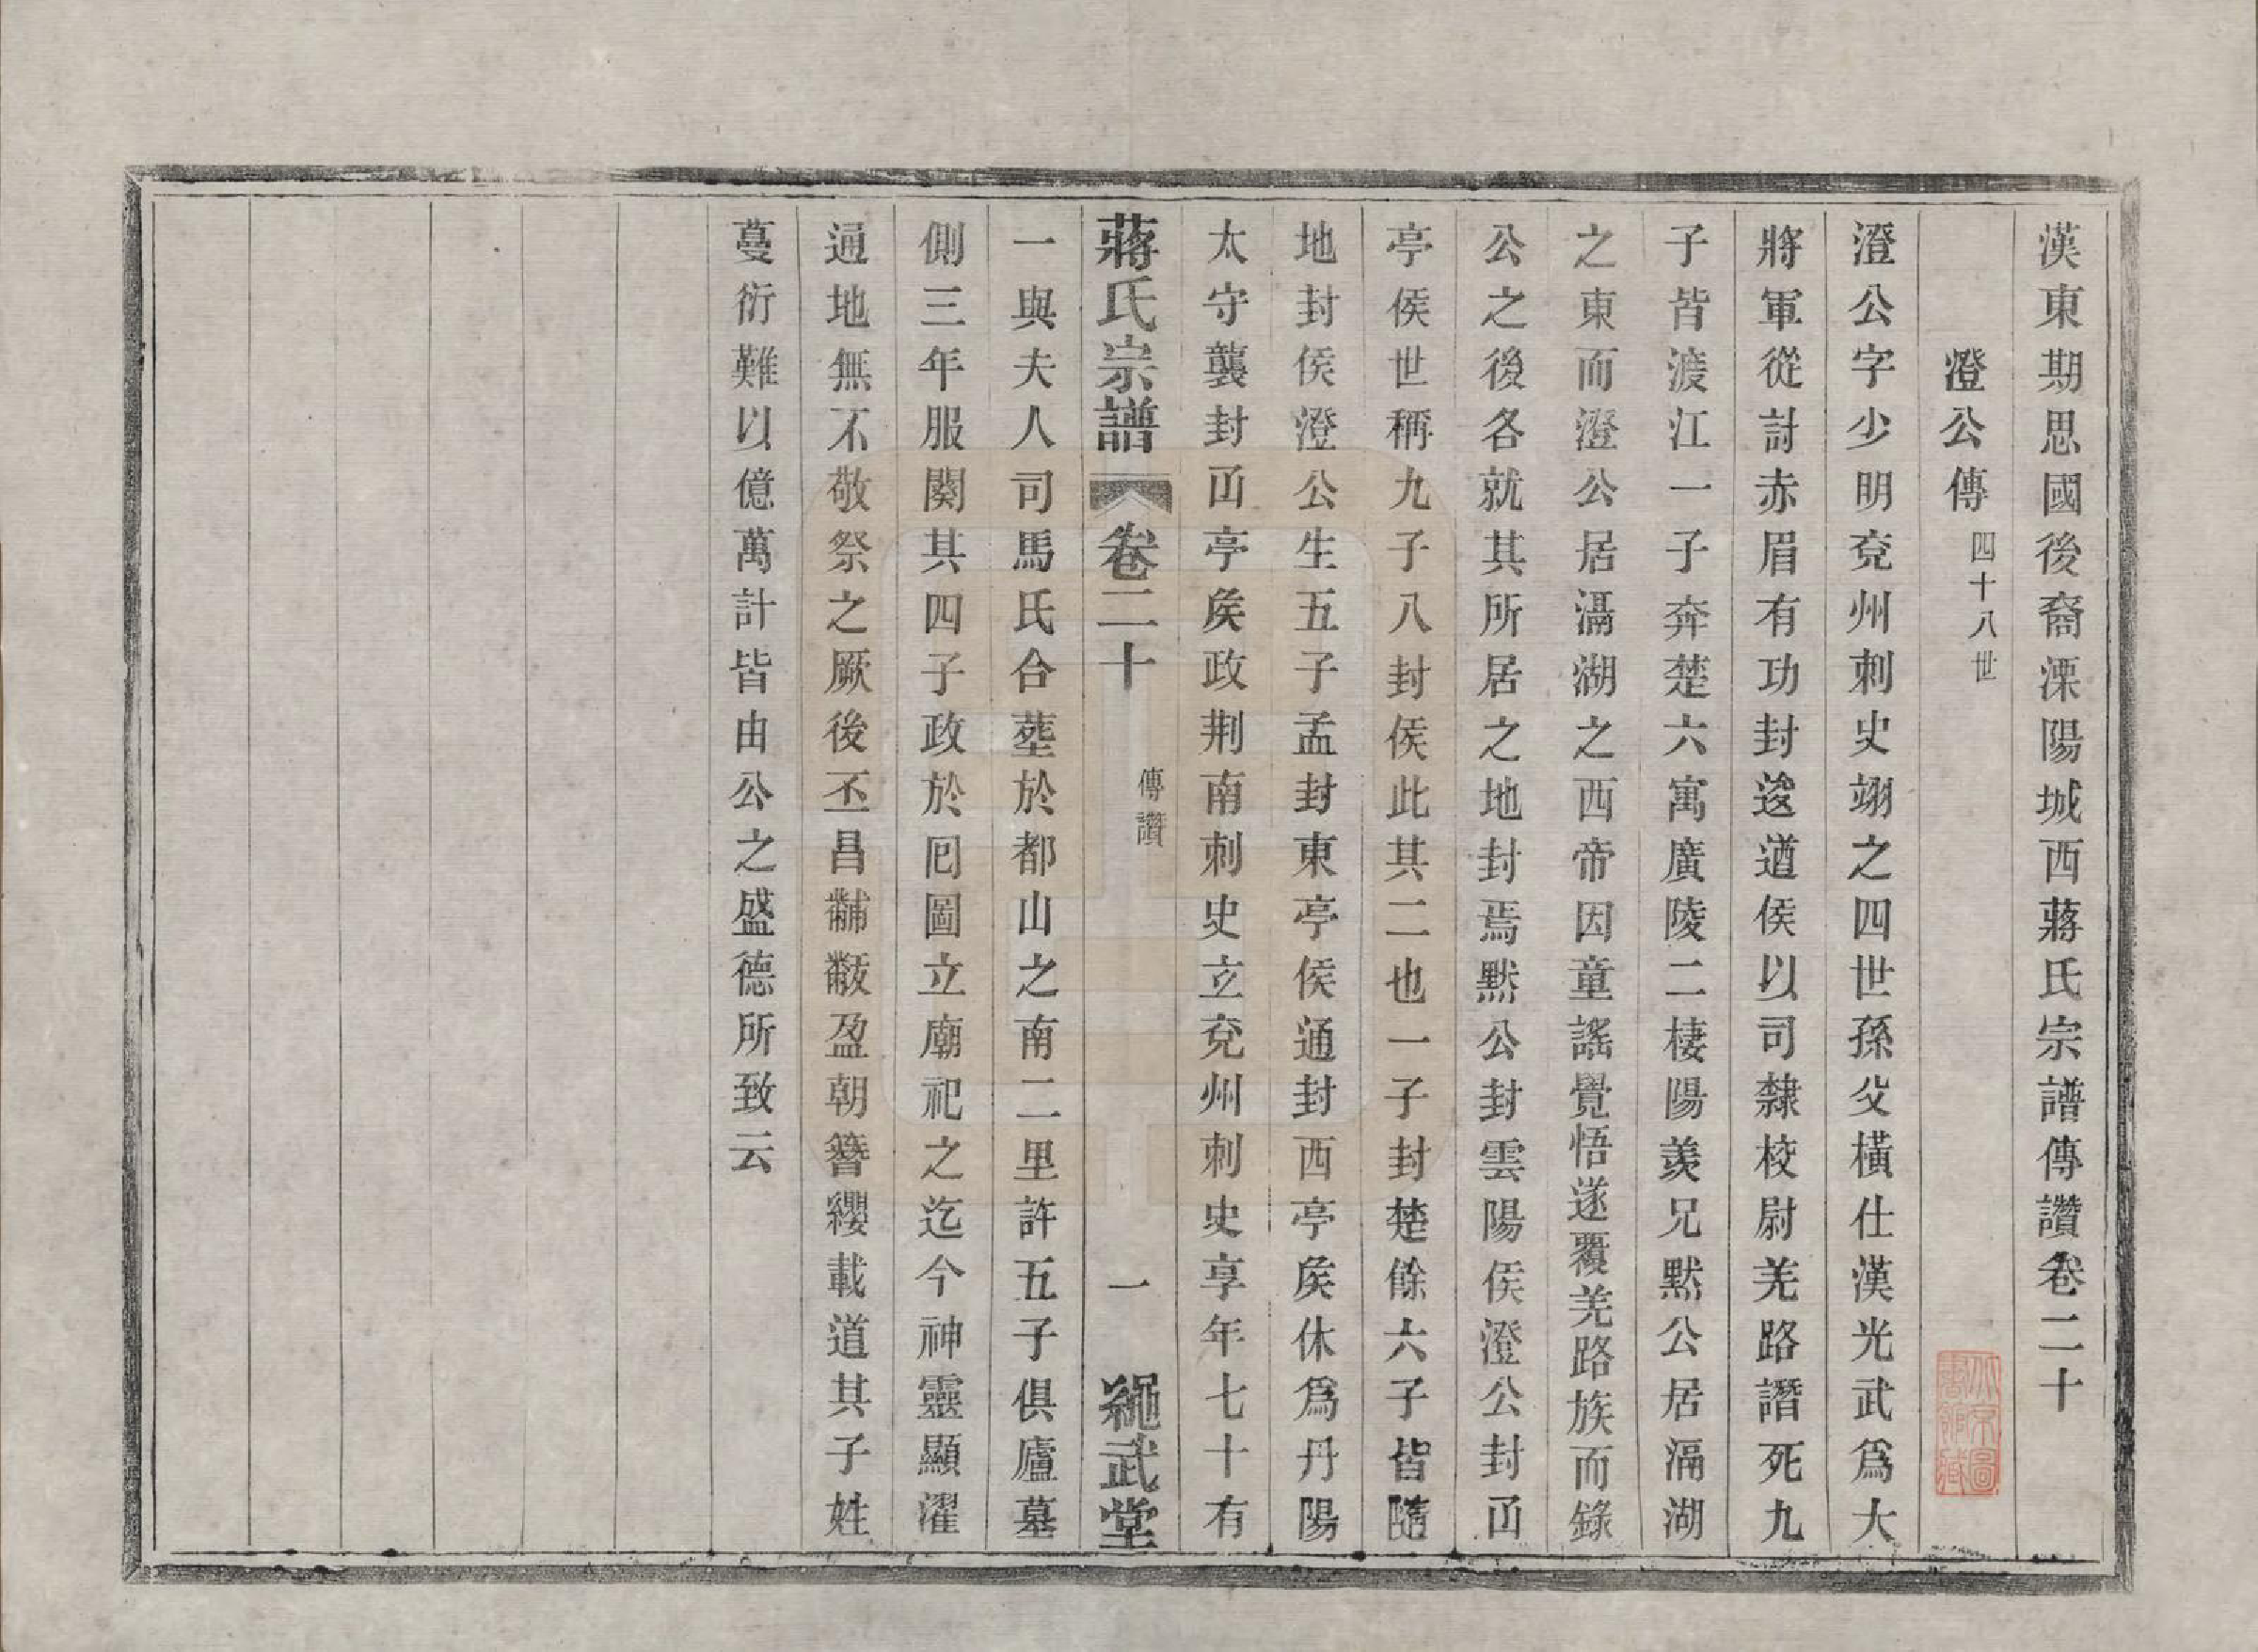 漢東期思國後裔溧陽城西蔣氏宗譜傳讚卷二十
澄公傳 四十八世
澄公字少明兗州刺史翊之四世孫父橫仕漢光武爲大
將軍從討赤眉有功封逡遒侯以司隸校尉羌路譖死九
子皆渡江一子奔楚六寓廣陵二棲陽羨兄默公居滆湖
之東而澄公居滆湖之西帝因童謠覺悟遂覆羌路族而錄
公之後各就其所居之地封焉默公封雲陽侯澄公封㓊
亭侯世稱九子八封侯此其二也一子封楚餘六子皆隨
地封侯澄公生五子孟封東亭侯通封西亭矦休爲丹陽
太守襲封㓊亭矦政荆南刺史立兗州刺史享年七十有
蔣氏宗譜 卷二十 傳讚 一 繩武堂
一與夫人司馬氏合塟於都山之南二里許五子俱廬墓
側三年服闋其四子政於囘圖立廟祀之迄今神靈顯濯
通地無不敬祭之厥後丕昌黼黻盈朝簪纓載道其子姓
蔓衍難以億萬計皆由公之盛德所致云